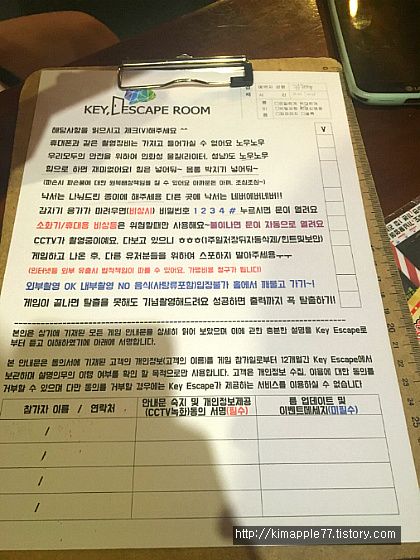 KEY ESCAPE ROOM
해당사항을 읽으시고 체크(V)해주세요 ^^
V
휴대폰과 같은 촬영장비는 가지고 들어가실 수 없어요 노우노우
우리모두의 안전을 위하여 인화성 물질(라이터, 성냥)도 노우노우
힘으로 하면 재미없어요! 힘은 넣어두고~ 몸을 박치기 넣어둬~
낙서는 나눠드린 종이에 해주세용 다른 곳에 낙서는 네버에버네버!!
갑자기 용기가 마려우면(비상시) 비밀번호 1 2 3 4 # 누르시면 문이 열려요
소화기/휴대용 비상등은 위험할때만 사용해요~불이나면 문이 자동으로 열려요
CCTV가 촬영중이예요. 다보고 있으니 ㅎㅎㅎ(1주일저장뒤자동삭제/힌트및보안)
게임하고 나온 후, 다른 유저분들을 위하여 스포하지 말아주세용~~
(인터넷등 외부 유출시 법적책임이 따를 수 있어요, 가맹비용 청구가 됩니다)
외부촬영 OK 내부촬영 NO 음식(사탕류포함)입장불가 홀에서 깨물고 가기~!
게임이 끝나면 탈출을 못해도 기념촬영해드려요 성공하면 출력까지 꼭 탈출하기!
본인은 상기에 기재된 모든 게임 안내문을 상세히 읽어 보았으며 이에 관한 충분한 설명을 Key Escape로
부터 듣고 이해하였기에 아래에 서명합니다.
본 안내문은 동의서에 기재된 고객의 개인정보(고객의 이름)를 게임 참가일로부터 12개월간 Key Escape에서
보관하며 설명의무의 이행 여부를 확인 할 목적으로만 사용합니다. 고객은 개인정보 수집, 이용에 대한 동의를
거부할 수 있으며 다만 동의를 거부할 경우에는 Key Escape가 제공하는 서비스를 이용하실 수 없습니다
참가자 이름 / 연락처
안내문 숙지 및 개인정보제공
(CCTV녹화)동의 서명(필수)
룸 업데이트 및
이벤트메세지(미필수)
/
/
/
/
http://kimapple77.tistory.com